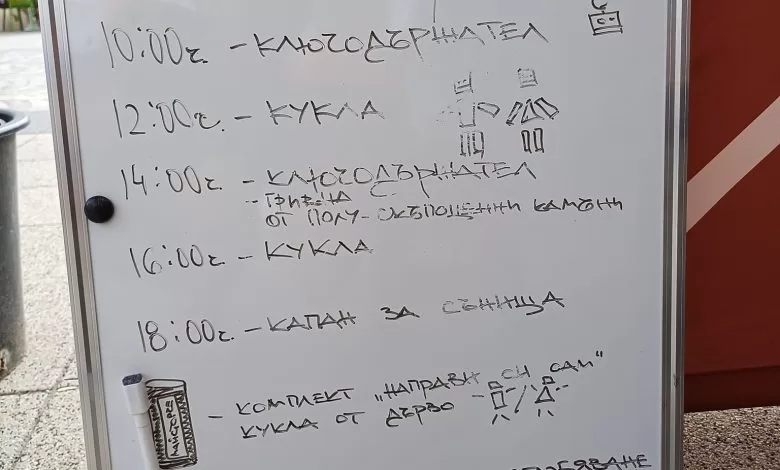 10:00г. - КЛЮЧОДЪРЖАТЕЛ
12:00г. - КУКЛА
14:00г. - КЛЮЧОДЪРЖАТЕЛ
- ГРИВНА
ОТ ПОЛУ-СКЪПОЦЕННИ КАМЪНИ
16:00г. - КУКЛА
18:00г. - КАПАН ЗА СЪНИЩА
- КОМПЛЕКТ „НАПРАВИ СИ САМ"
КУКЛА ОТ ДЪРВО